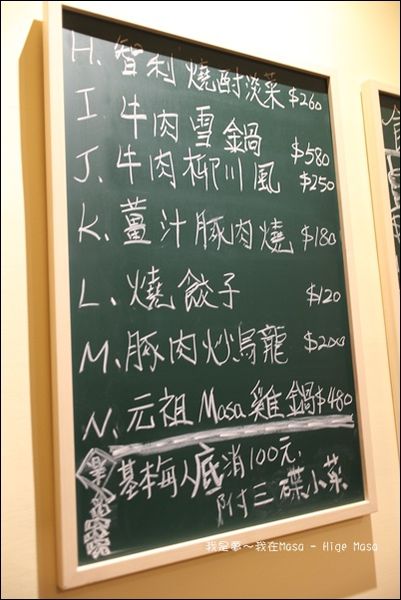 H. 智利燒酎淡菜 $260
I. 牛肉雪鍋 $580
J. 牛肉柳川風 $250
K. 薑汁豚肉燒 $180
L. 燒餃子 $120
M. 豚肉炒烏龍 $200
N. 元祖Masa雞鍋 $480
基本每人底消100元,
附三碟小菜
我是栗~我在Masa - Hige Masa